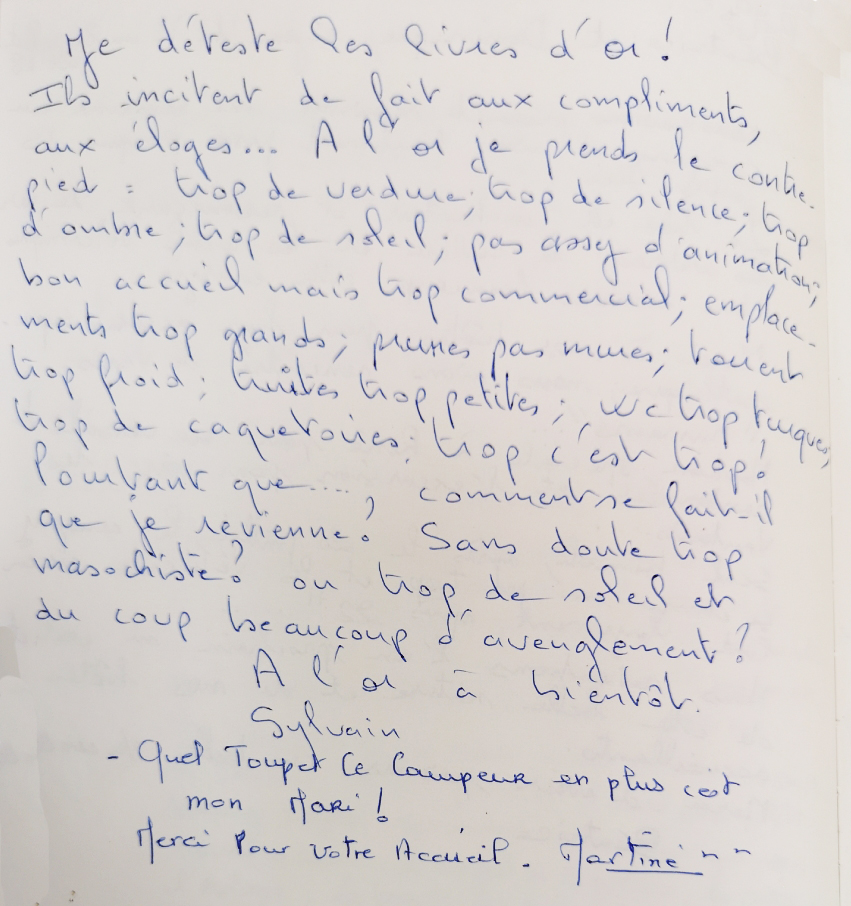 Je déteste les livres d'or !
Ils incitent de fait aux compliments,
aux éloges... A l'or je prends le contre-
pied = trop de verdure ; trop de silence ; trop
d'ombre ; trop de soleil ; pas assez d'animation ;
bon accueil mais trop commercial ; emplace-
ments trop grands ; prunes pas mures ; torrent
trop froid ; truites trop petites ; WC trop turques ;
trop de caquetoires ; trop c'est trop !
Pourtant que...., comment se fait-il
que je revienne ? Sans doute trop
masochiste ? ou trop de soleil et
du coup beaucoup d'aveuglement ?
A l'or à bientôt.
Sylvain
- Quel Toupet Ce Campeur en plus c'est
mon Mari !
Merci Pour Votre Accueil. Martine